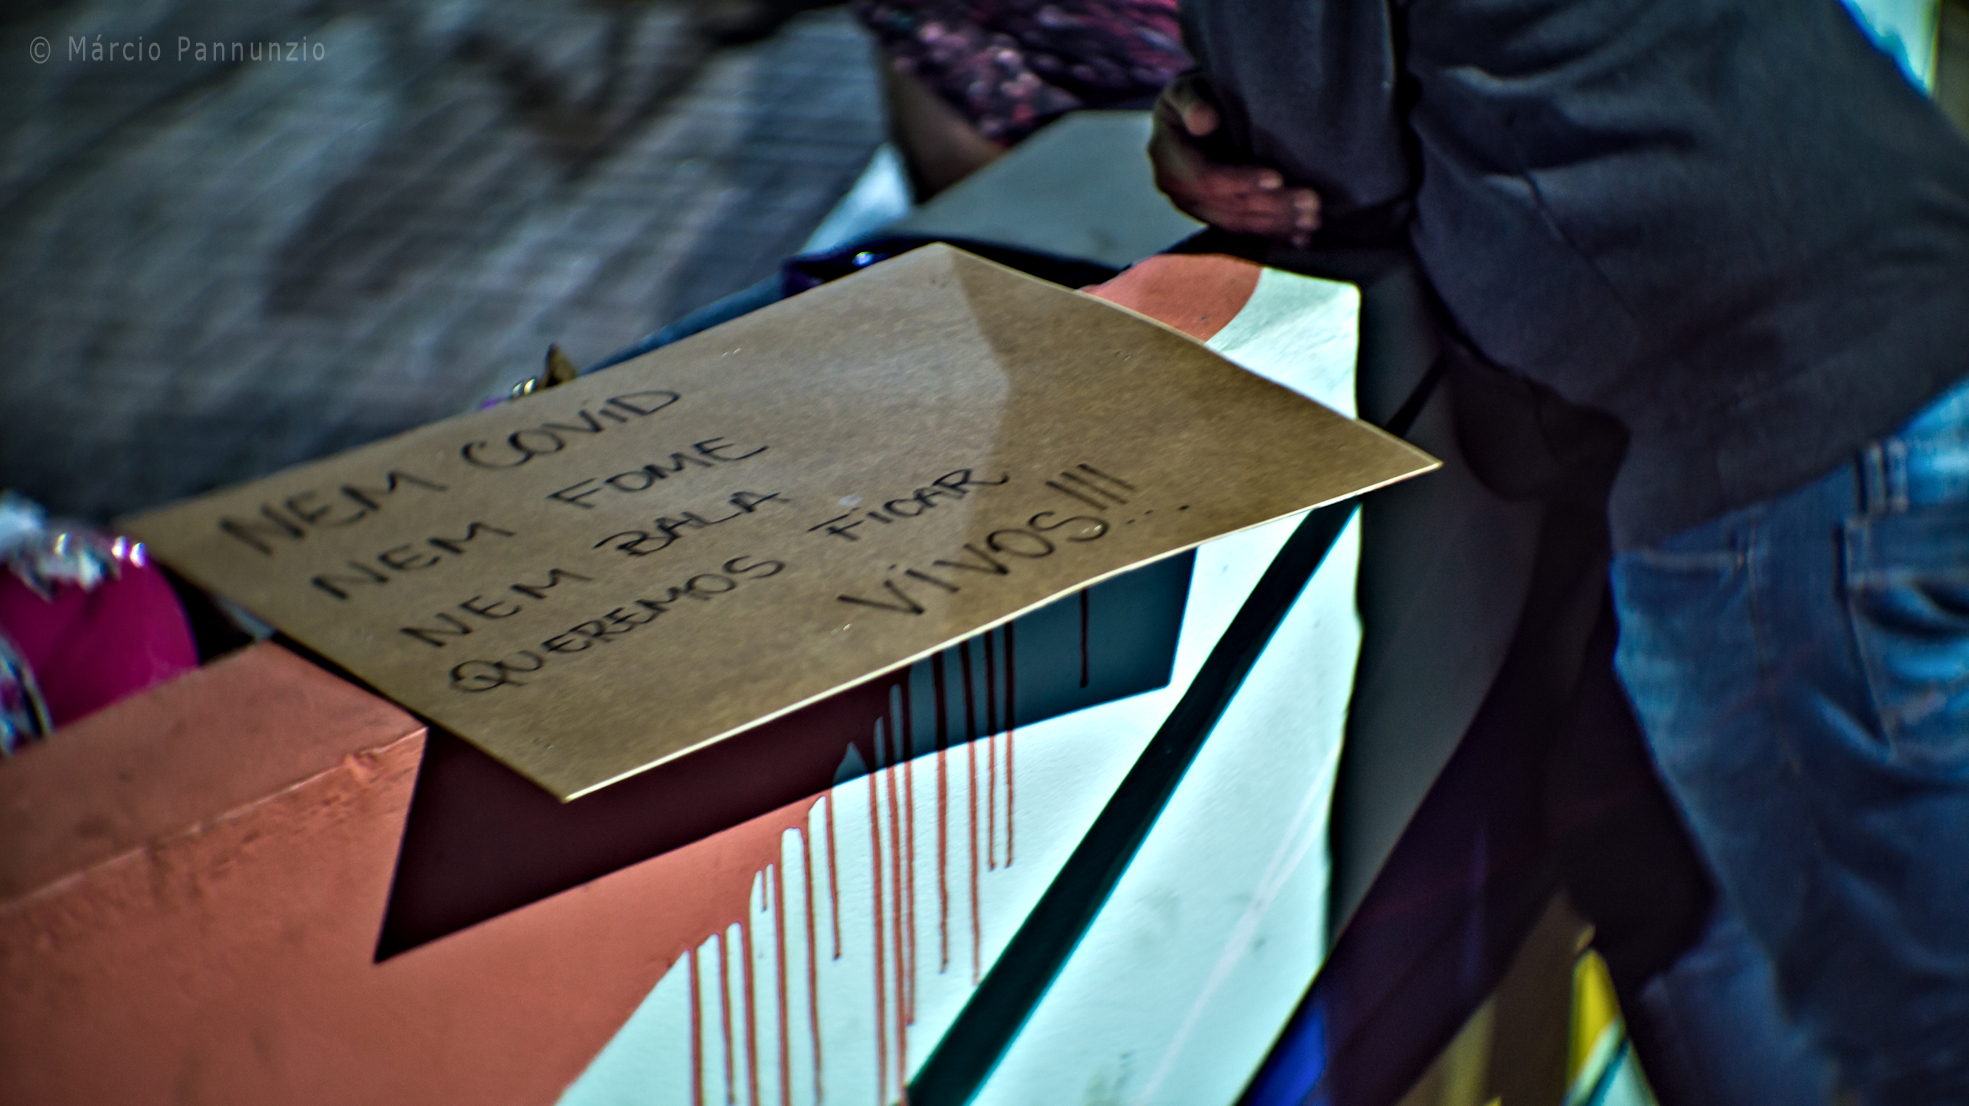 © Márcio Pannunzio
NEM COVID
NEM FOME
NEM BALA
QUEREMOS FICAR
VIVOS!!!...